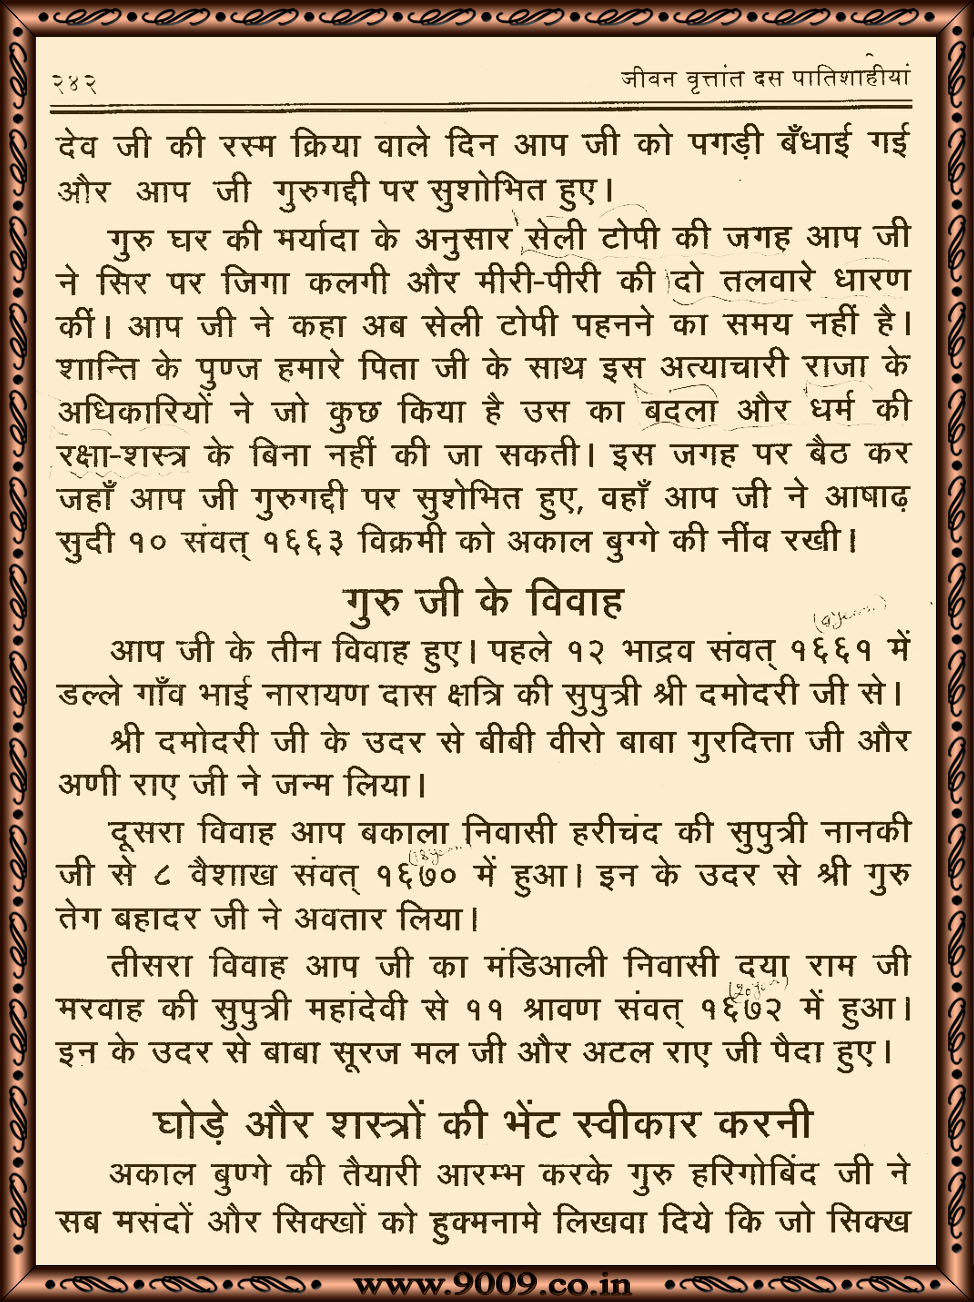 २४२ जीवन वृत्तांत दस पातिशाहीयां
देव जी की रस्म क्रिया वाले दिन आप जी को पगड़ी बँधाई गई
और आप जी गुरुगद्दी पर सुशोभित हुए।
गुरु घर की मर्यादा के अनुसार सेली टोपी की जगह आप जी
ने सिर पर जिगा कलगी और मीरी-पीरी की दो तलवारे धारण
कीं। आप जी ने कहा अब सेली टोपी पहनने का समय नहीं है।
शान्ति के पुण्ज हमारे पिता जी के साथ इस अत्याचारी राजा के
अधिकारियों ने जो कुछ किया है उस का बदला और धर्म की
रक्षा-शस्त्र के बिना नहीं की जा सकती। इस जगह पर बैठ कर
जहाँ आप जी गुरुगद्दी पर सुशेभित हुए, वहाँ आप जी ने आषाढ़
सुदी १० संवत् १६६३ विक्रमी को अकाल बुग्गे की नींव रखी।
गुरु जी के विवाह
आप जी के तीन विवाह हुए। पहले १२ भाद्रव संवत् १६६१ में
डल्ले गाँव भाई नारायण दास क्षत्रि की सुपुत्री श्री दमोदरी जी से।
श्री दमोदरी जी के उदर से बीबी वीरो बाबा गुरदित्ता जी और
अणी राए जी ने जन्म लिया।
दूसरा विवाह आप बकाला निवासी हरीचंद की सुपुत्री नानकी
जी से ८ वैशाख संवत् १६७० में हुआ। इन के उदर से श्री गुरु
तेग बहादर जी ने अवतार लिया।
तीसरा विवाह आप जी का मंडिआली निवासी दया राम जी
मरवाह की सुपुत्री महांदेवी से ११ श्रावण संवत् १६७२ में हुआ।
इन के उदर से बाबा सूरज मल जी और अटल राए जी पैदा हुए।
घोड़े और शस्त्रों की भेंट स्वीकार करनी
अकाल बुण्गे की तैयारी आरम्भ करके गुरु हरिगोबिंद जी ने
सब मसंदों और सिक्खों को हुक्मनामे लिखवा दिये कि जो सिक्ख
www.9009.co.in